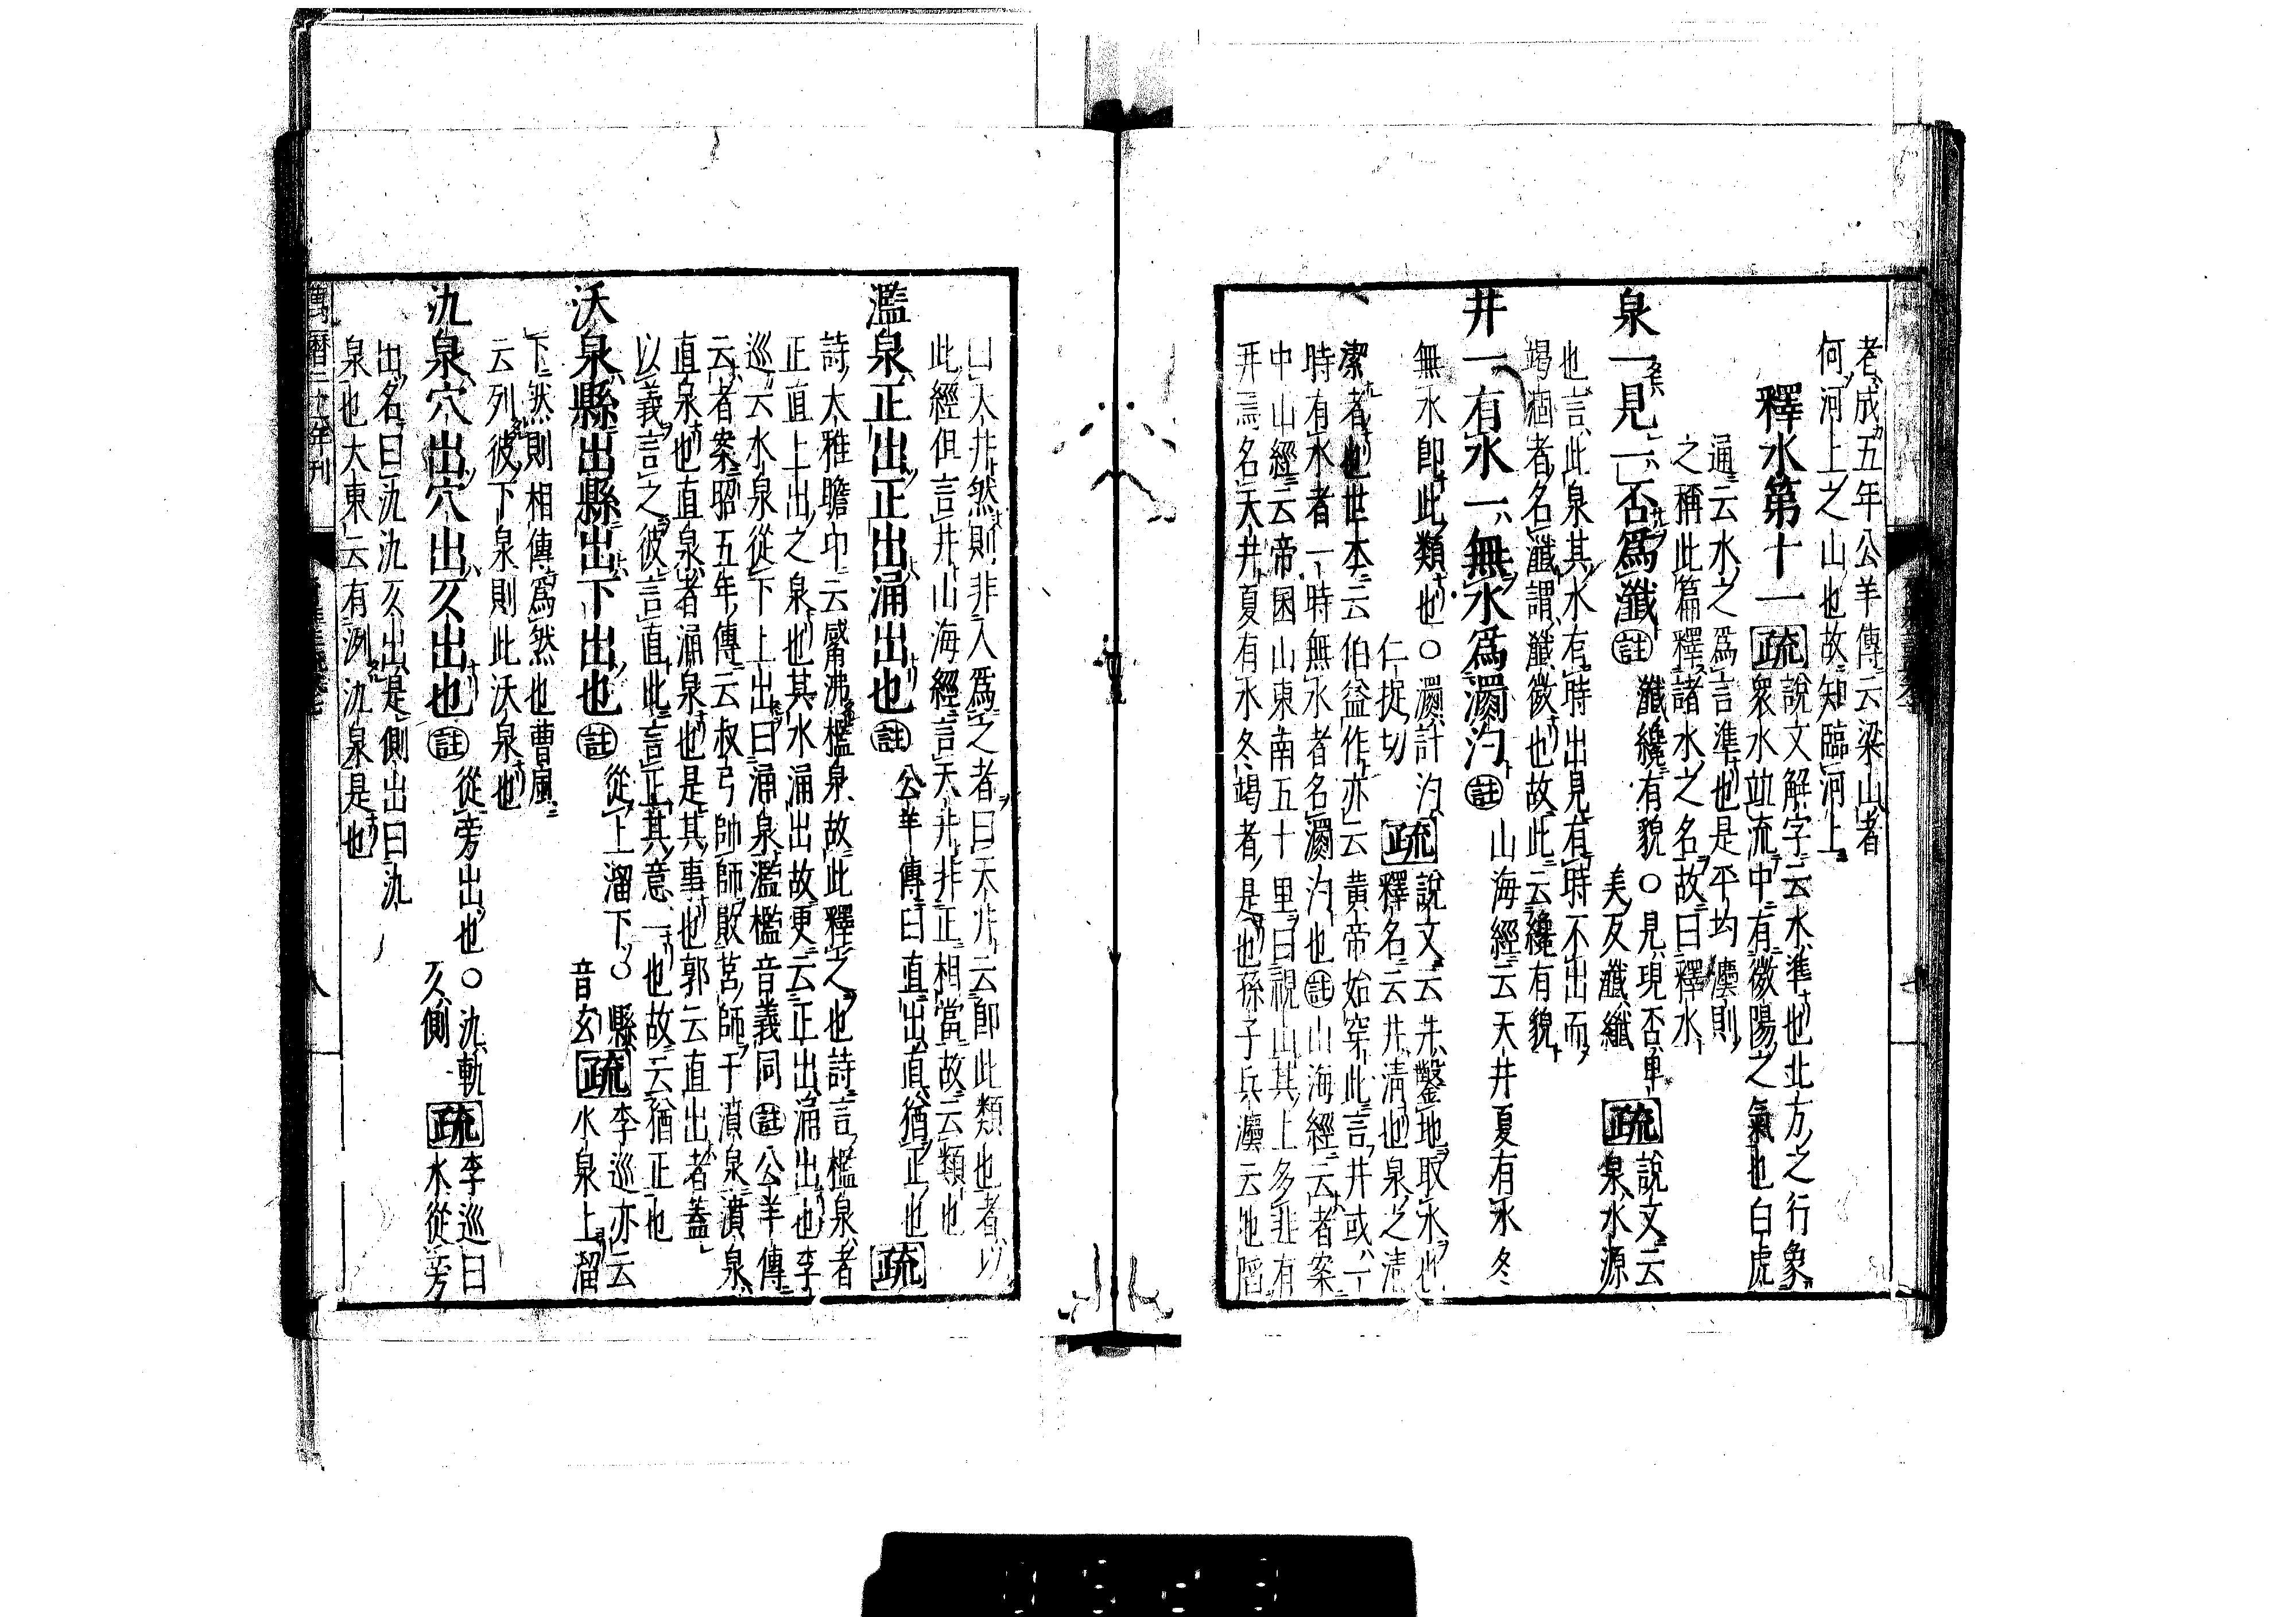 老成五年公羊傳云梁山者
何河上之山也故知臨河上
釋水第十一疏說文解字云水準也北方之行象
衆水竝流中有微陽之氣也白虎
通云水之爲言準也是平均瀍則
之稱此篇釋諸水之名故曰釋水
泉一見一否爲瀸註瀸纔有貌○見現否車
美反瀸纖疏說文云
泉水源
也言此泉其水有時出見有時不出而
竭涸者名瀸謂瀸微也故此云纔有貌
井一有水一無水爲瀱汋註山海經云天井夏有水冬
無水卽此類也○瀱計汋
仁捉切疏說文云井鑿地取水也
釋名云井清也泉之清
潔者也世本云伯益作亦云黃帝始穿此言井或一
時有水者一時無水者名瀱汋也註山海經云者案
中山經云帝囷山東南五十里曰視山其上多韭有
井焉名天井夏有水冬竭者是也孫子兵瀍云地陷
曰天井然則非人爲之者曰天井云卽此類也者以
此經但言井山海經言天井非正相當故云類也
濫泉正出正出涌出也註公羊傳曰直出直猶正也疏
詩大雅瞻卬云觱沸檻泉故此釋之也詩言檻泉者
正直上出之泉也其水涌出故更云正出涌出也李
巡云水泉從下上出曰涌泉濫檻音義同註公羊傳
云者案昭五年傳云叔弓帥師敗莒師于濆泉濆泉
直泉也直泉者涌泉也是其事也郭云直出者蓋
以義言之彼言直此言正其意一也故云猶正也
沃泉縣出縣出下出也註從上溜下○縣
音玄疏李巡亦云
水泉上溜
下然則相傳爲然也曹風
云列彼下泉則此沃泉也
氿泉穴出穴出仄出也註從旁出也○氿軌
仄側疏李巡曰
水從旁
出名曰氿氿仄出是側出曰氿
泉也大東云有洌氿泉是也